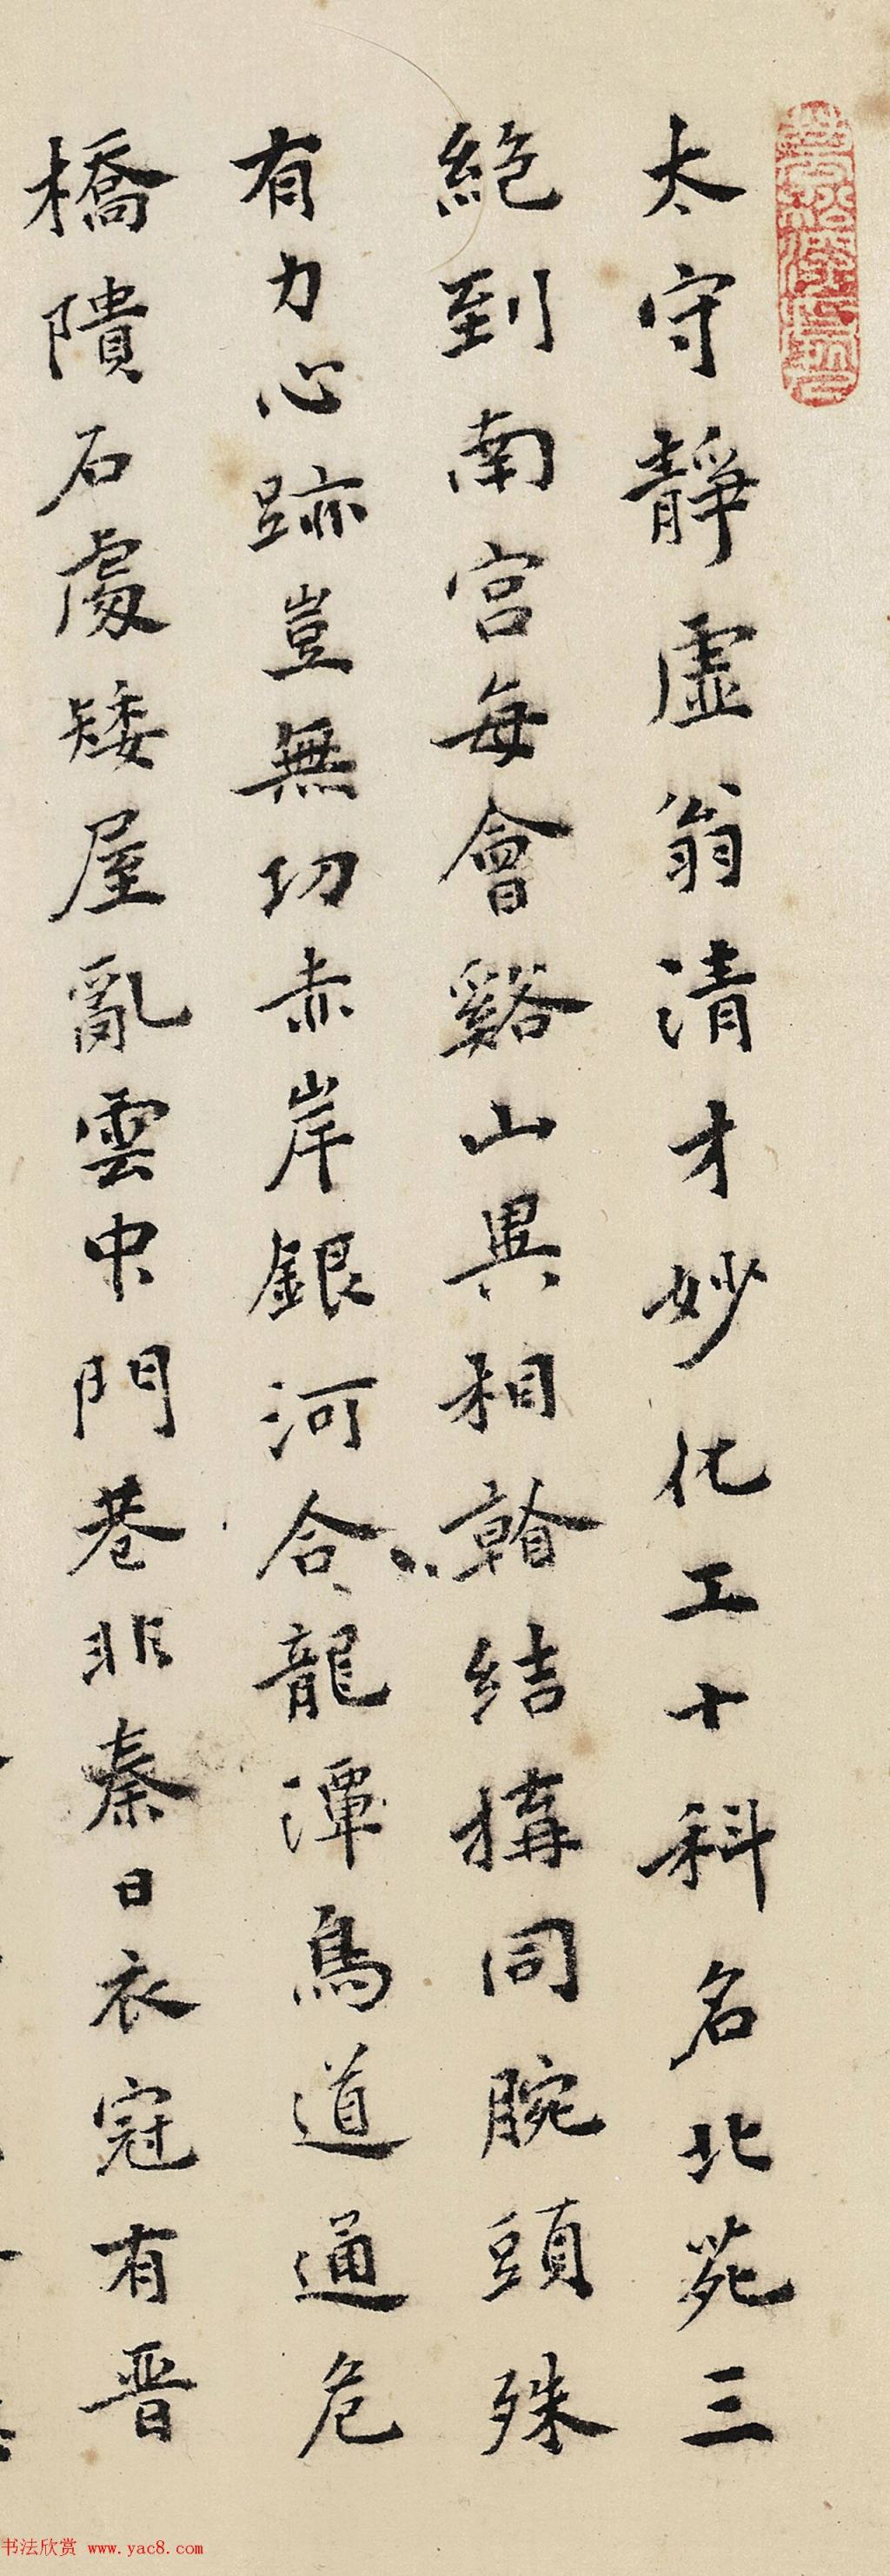 太守靜虛翁清才妙化工十科名北苑三
絕到南宮每會谿山異相翰結搆同腕頭殊
有力心跡豈無功赤岸銀河合龍潭鳥道通危
橋隤石處矮屋亂雲中門巷非秦日衣冠有晋
书法欣赏 www.yac8.com